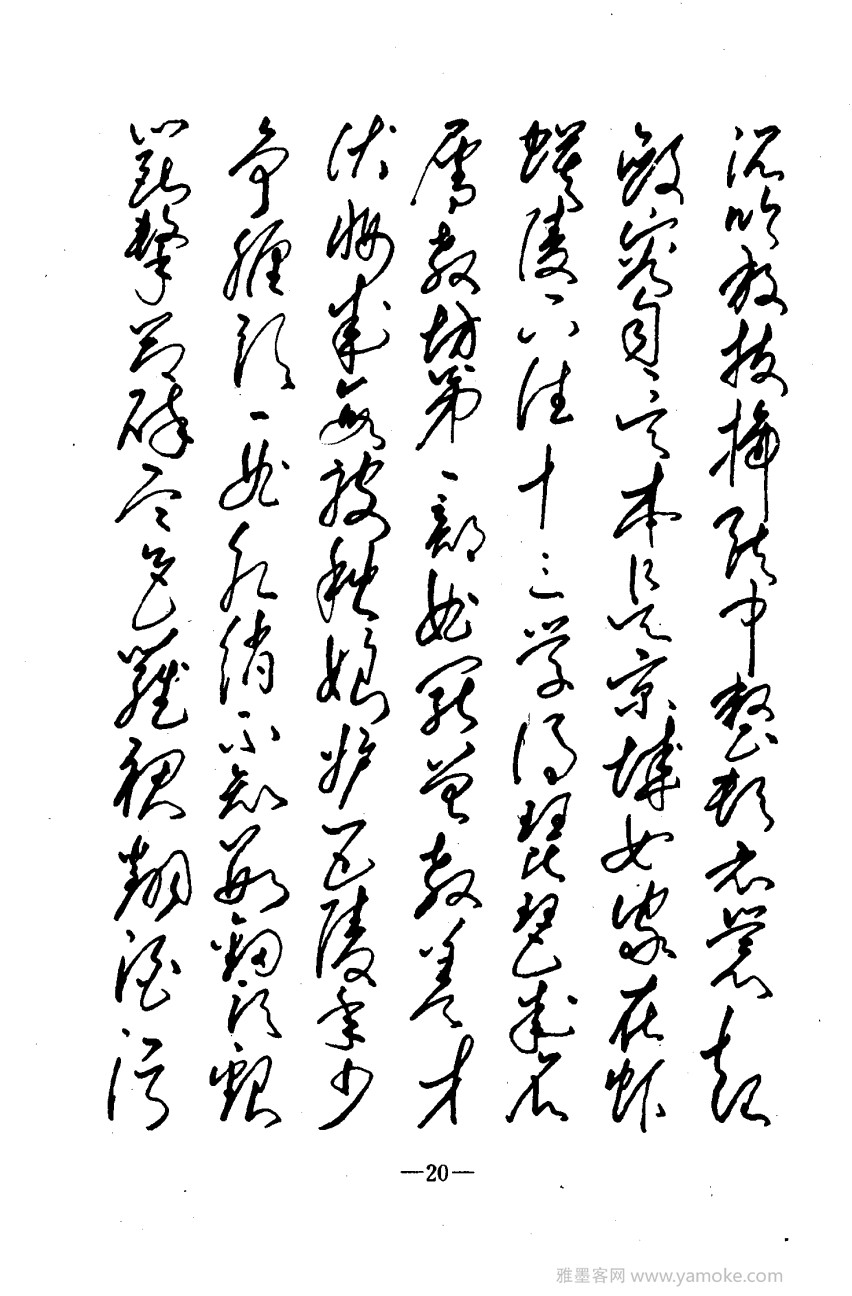 沉吟放拨插弦中整顿衣裳起
敛容自言本是京城女家在虾
蟆陵下住十三学得琵琶成名
属教坊第一部曲罢曾教善才
伏妆成每被秋娘妒五陵年少
争缠头一曲红绡不知数钿头银
篦擊节碎血色羅裙翻酒污
—20—
雅墨客网 www.yamoke.com